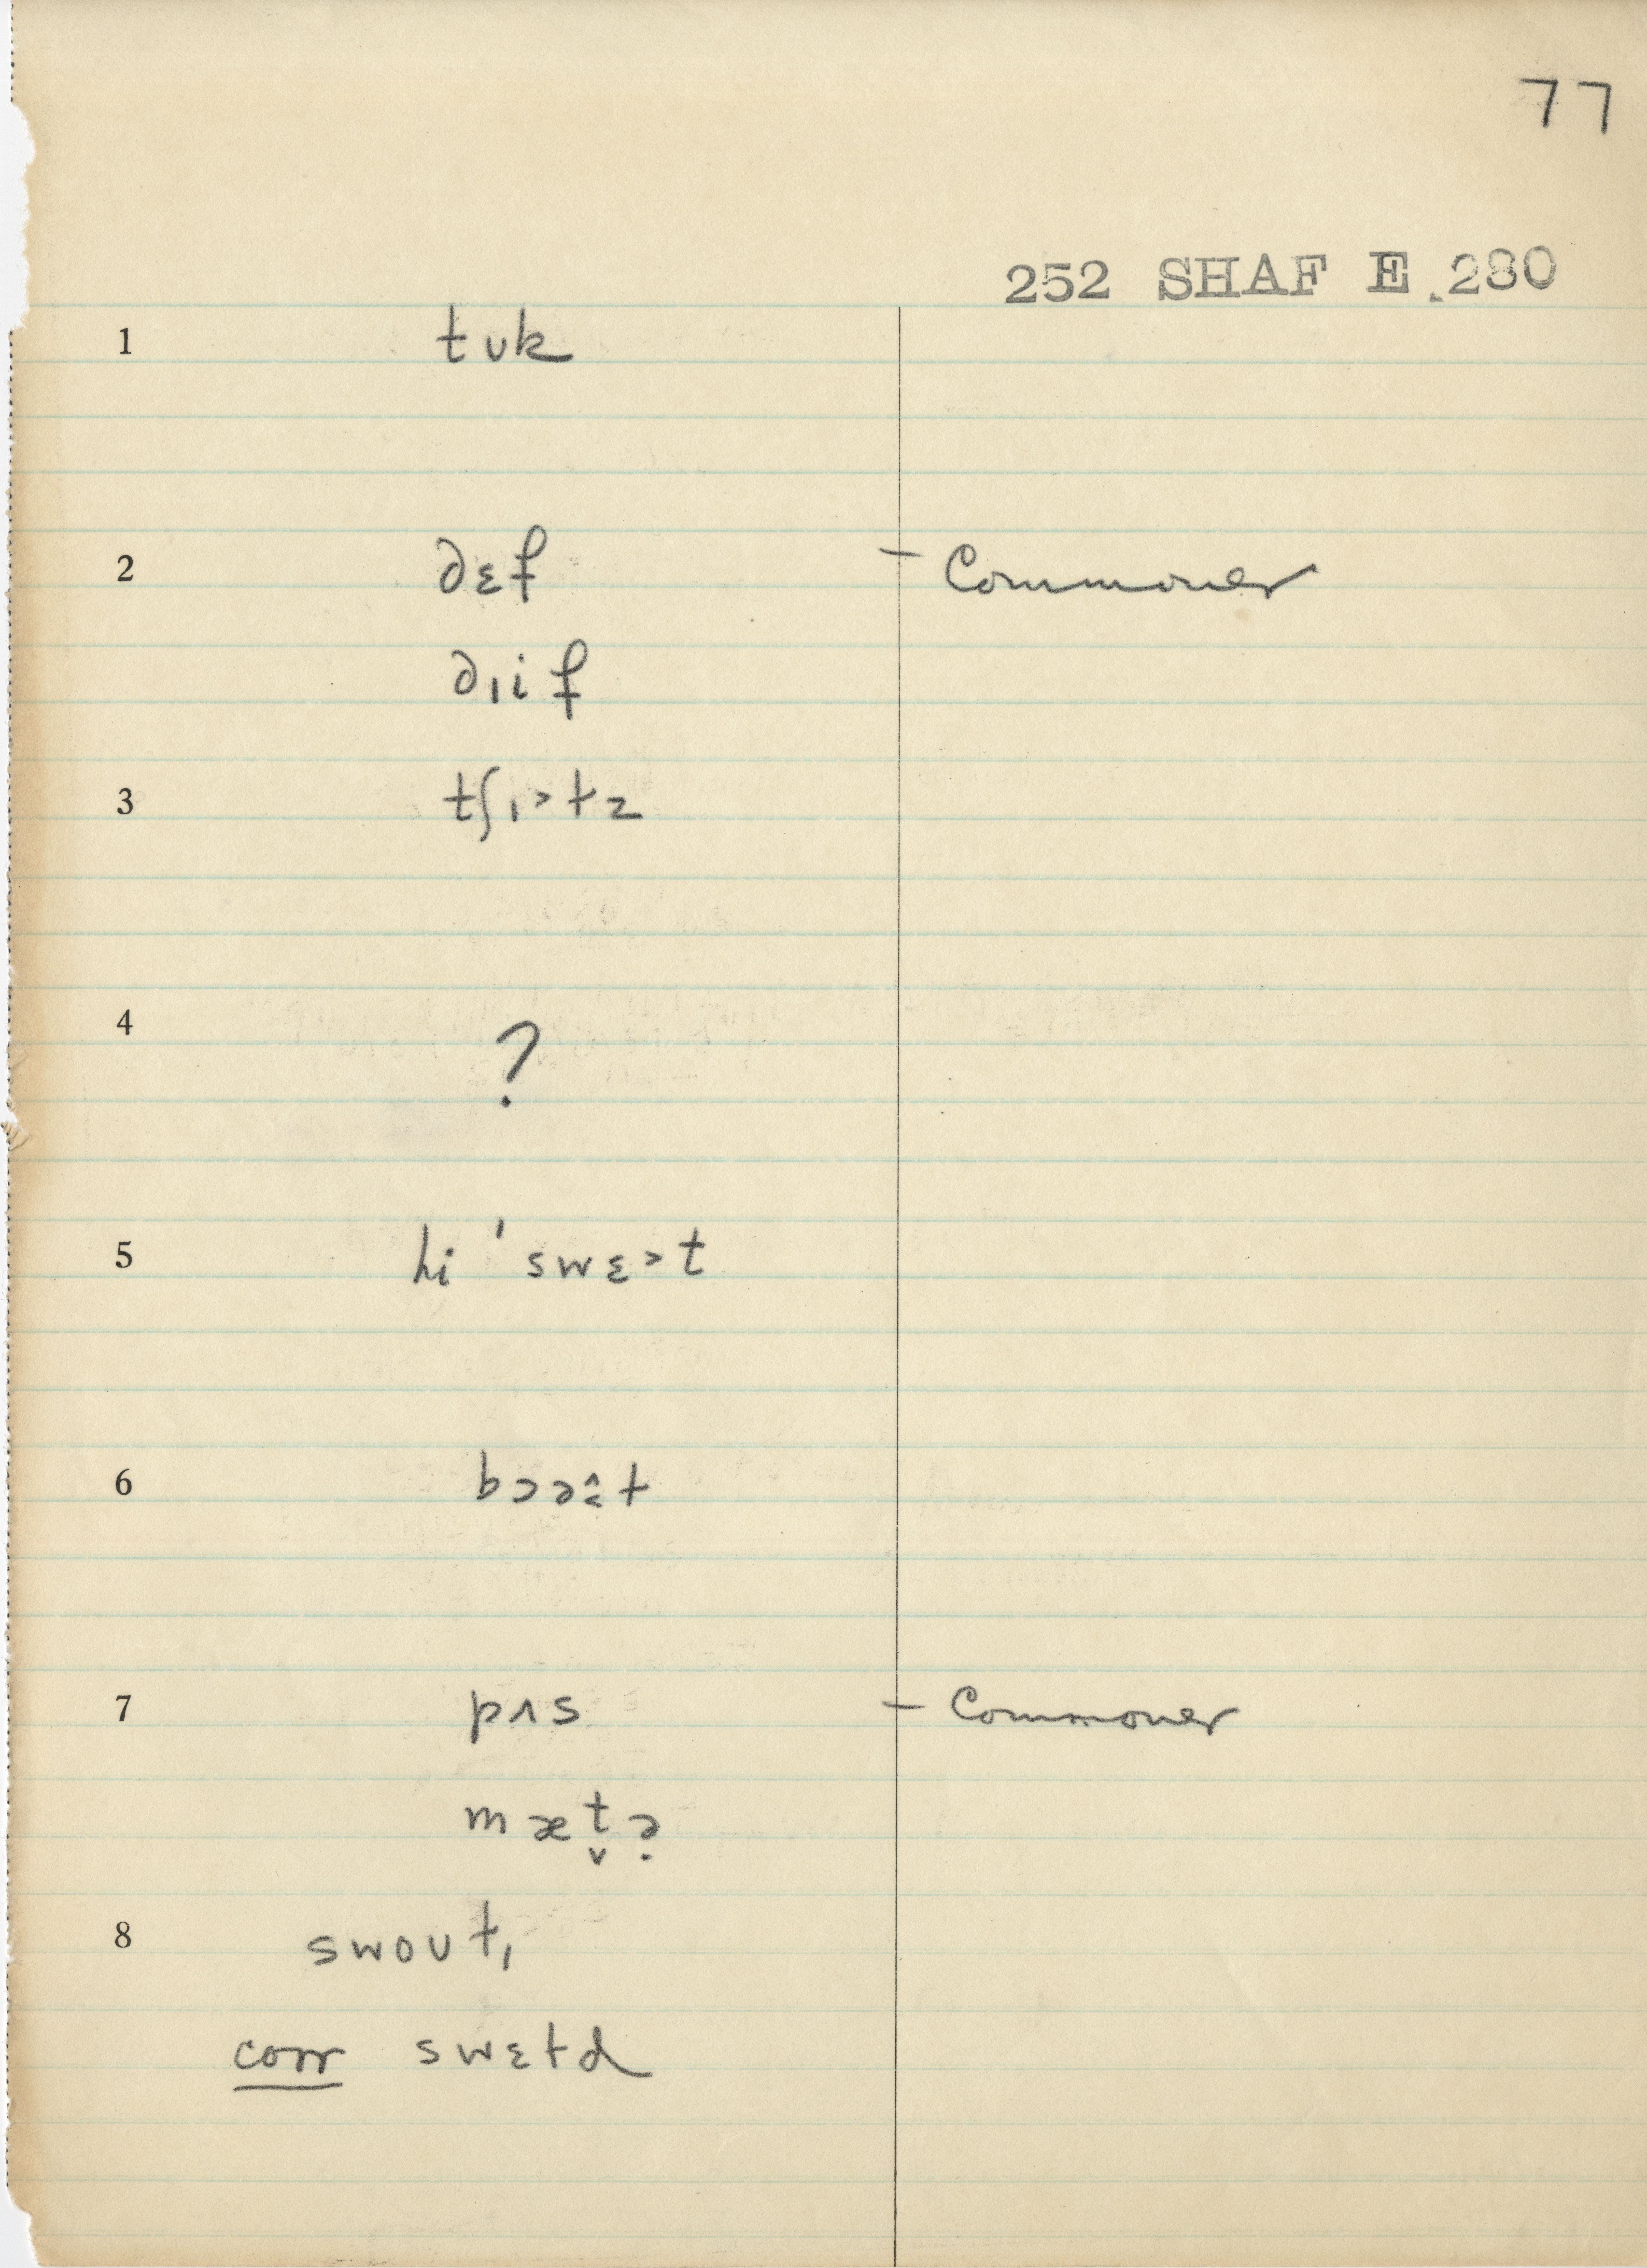 77
252 SHAF E 280
1 tʊk
2 dɛf – Commoner
dɪif
3 tʃɪ˃tz
4 ?
5 hi ˈswɛ˃t
6 bɔət
7 pʌs – Commoner
mæt̬ə̣
8 swoʊtɪ
corr swɛtd